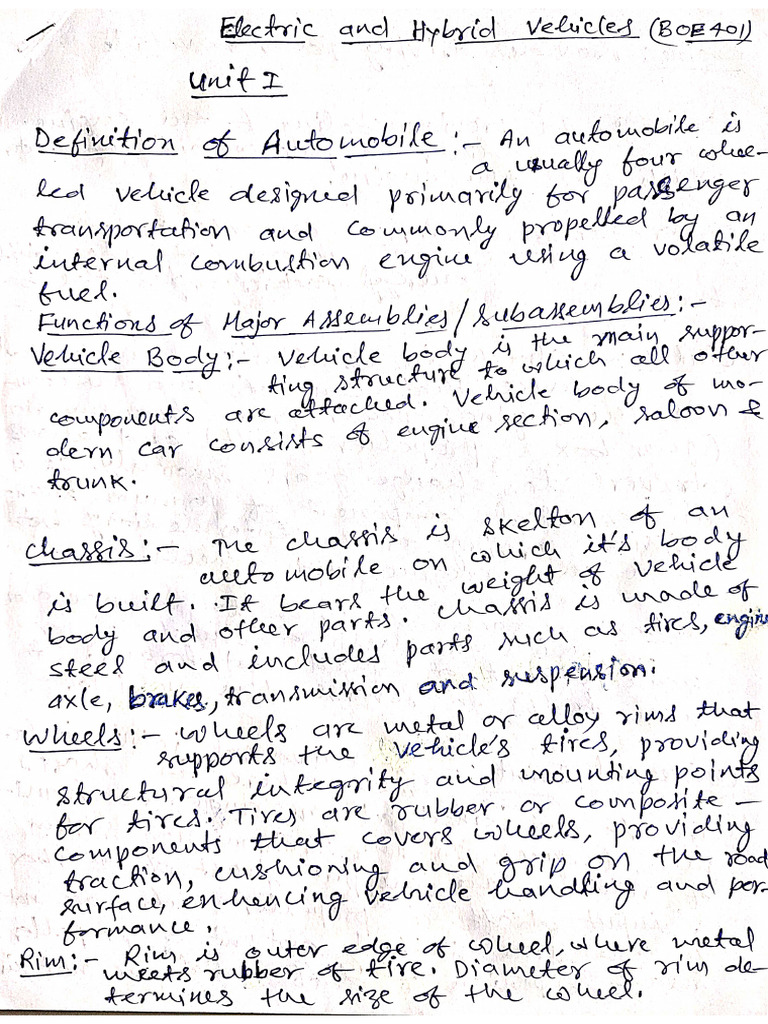 Electric and Hybrid Vehicles (BOE401)
Unit I
Definition of Automobile:- An automobile is
a usually four whee-
led vehicle designed primarily for passenger
transportation and commonly propelled by an
internal combustion engine using a volatile
fuel.
Functions of Major Assemblies/Subassemblies:-
Vehicle Body:- Vehicle body is the main suppor-
ting structure to which all other
components are attached. Vehicle body of mo-
dern car consists of engine section, saloon &
trunk.
Chassis:- The chassis is skelton of an
automobile on which it's body
is built. It bears the weight of vehicle
body and other parts. Chassis is made of
steel and includes parts such as tires, engine
axle, brakes, transmission and suspension.
Wheels:- Wheels are metal or alloy rims that
supports the vehicle's tires, providing
structural integrity and mounting points
for tires. Tires are rubber or composite -
components that covers wheels, providing
traction, cushioning and grip on the road
surface, enhencing vehicle handling and per-
formance.
Rim:- Rim is outer edge of wheel, where metal
meets rubber of tire. Diameter of rim de-
termines the size of the wheel.